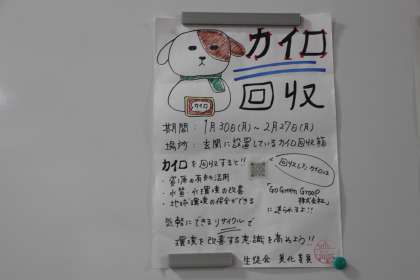 カイロ
回収
カイロ
期間：1月30日(月)～2月27日(月)
場所：玄関に設置しているカイロ回収箱
カイロを回収すると!!
・資源の有効活用
・水質・水環境の改善
・地球環境の保全ができる
回収したカイロは
「Go Green Group
株式会社」
に送られるよ!!
気軽にできるリサイクルで
環境を改善する意識を高めよう!!
生徒会 美化委員